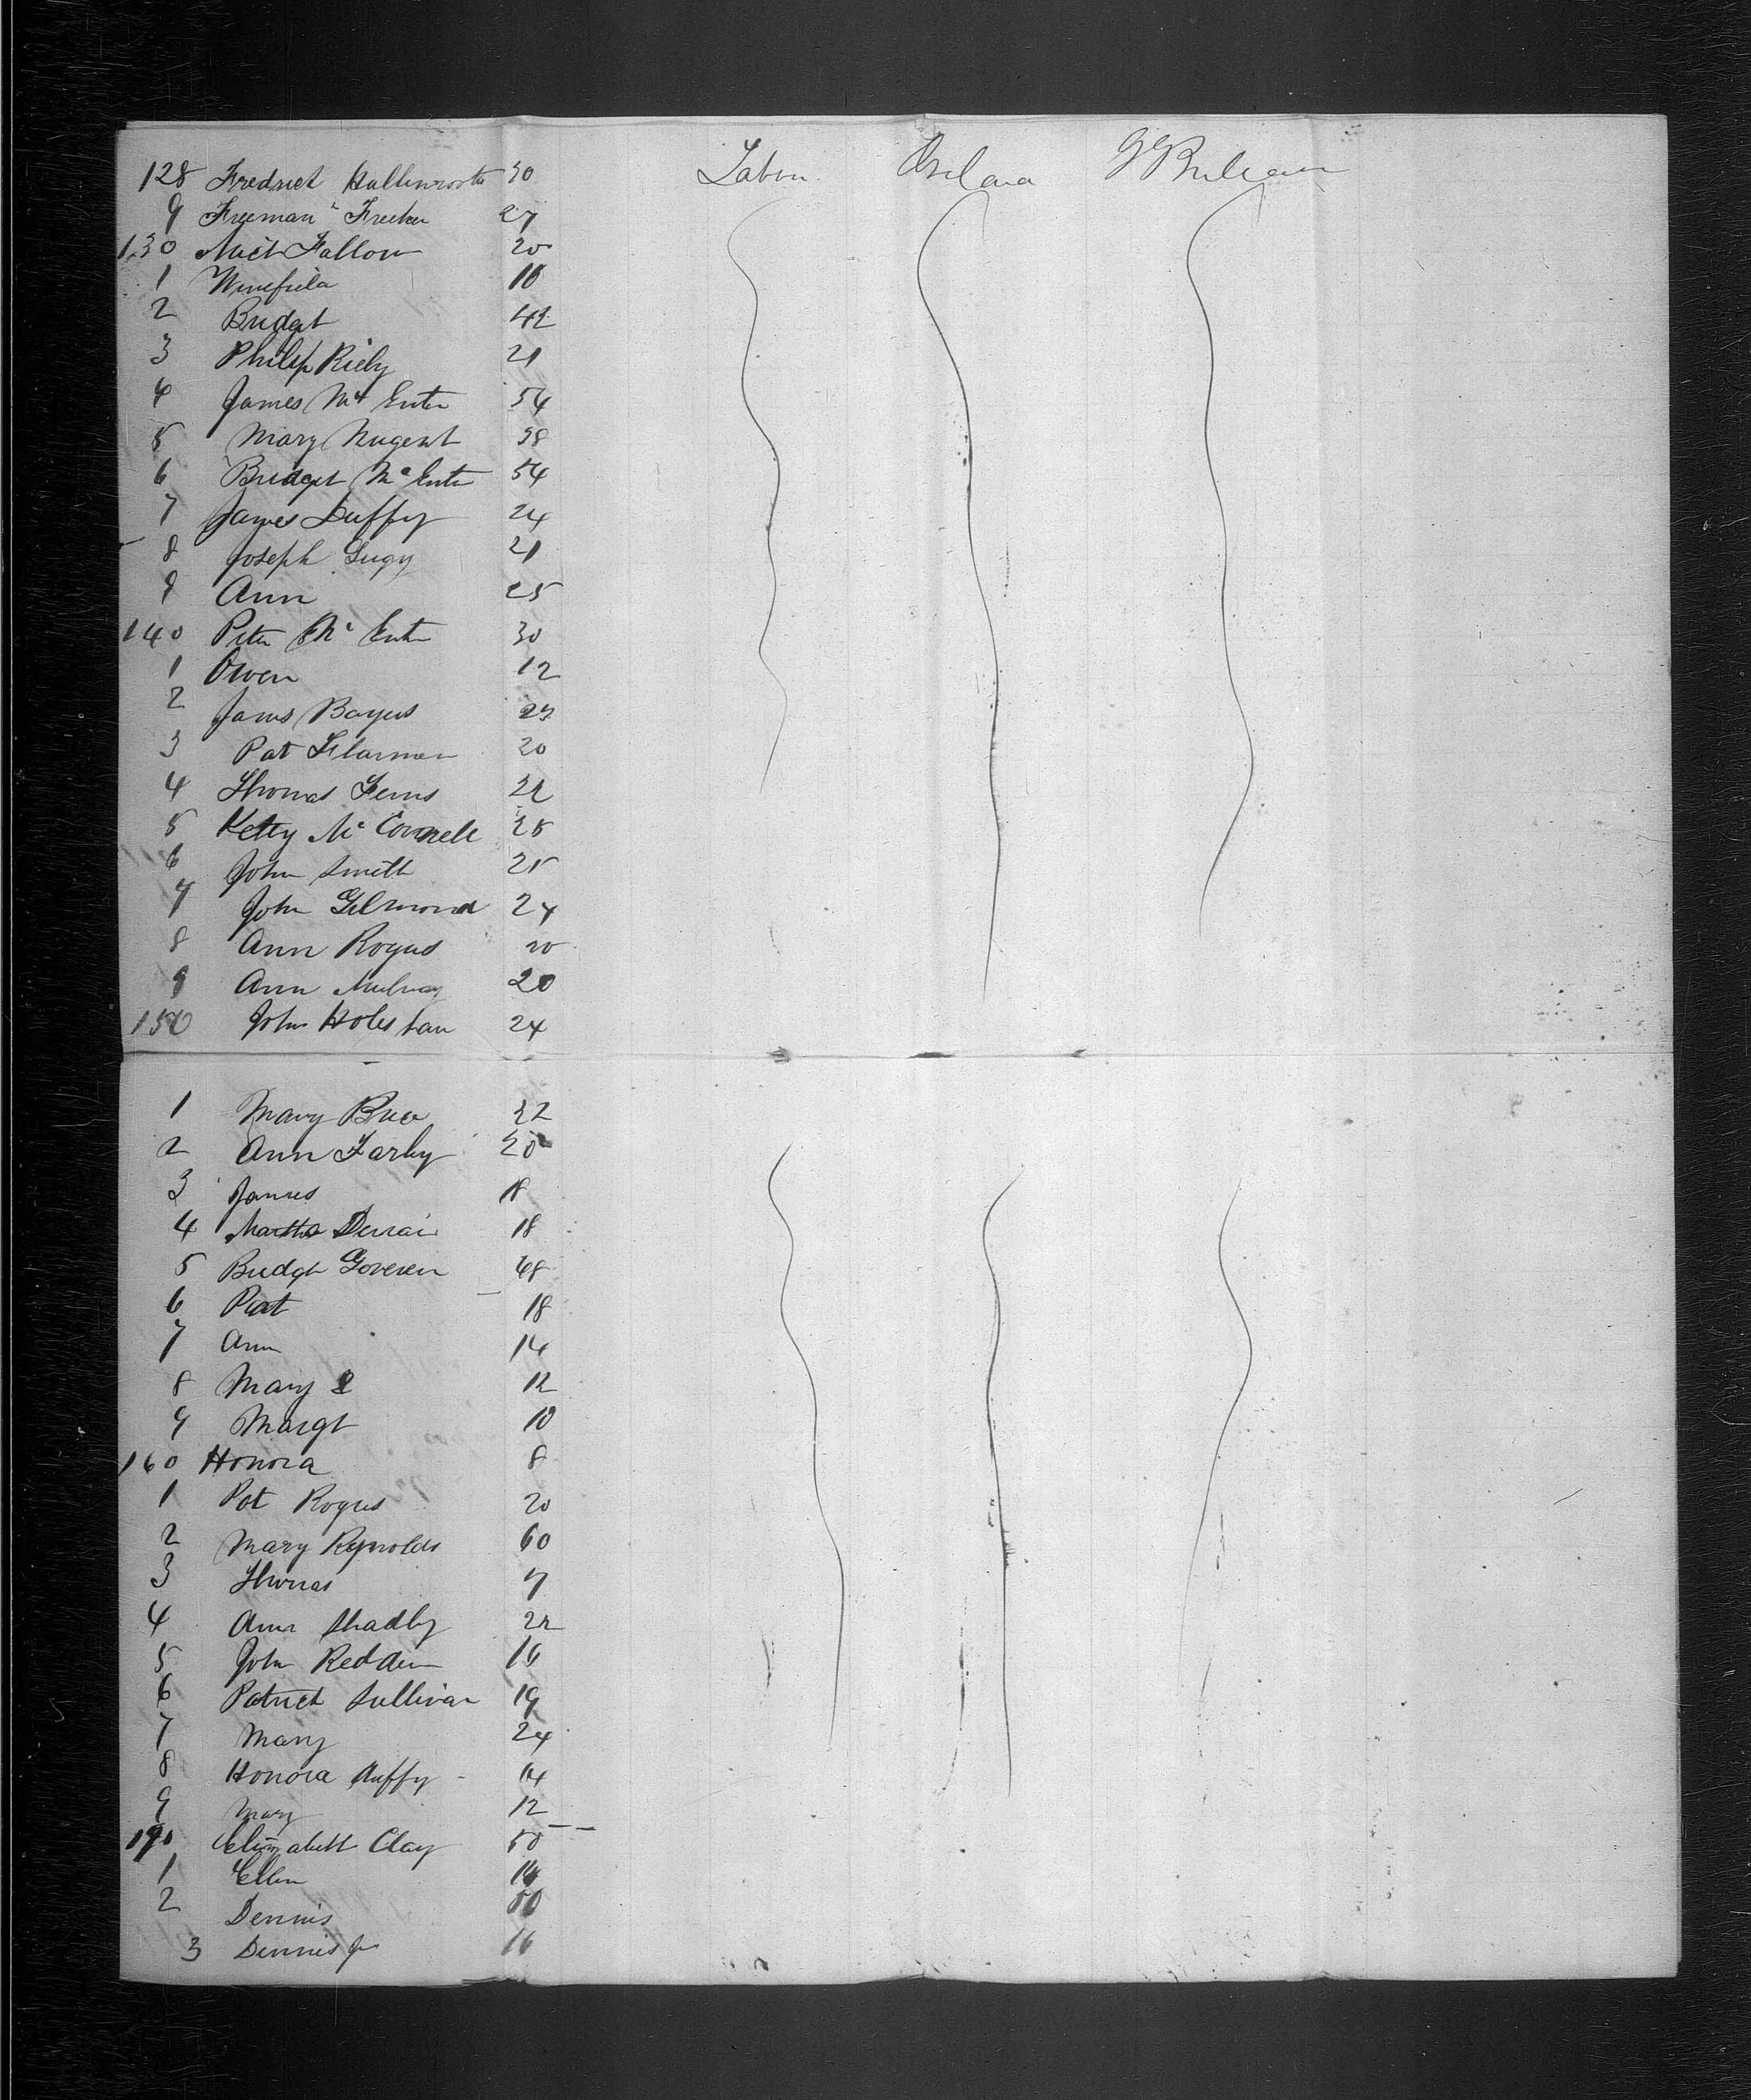 128 Fredrick 30 Labor Ireland G Britain
9 Freeman Freeker 27
130 Mick Fallon 20
1 Winefrela 18
2 Bridget 42
3 Philip Riely 21
4 James Mc Enter 54
5 Mary Nugent 38
6 Bridget Mc Enter 54
7 James Duffy 24
8 Joseph 21
9 Ann 25
140 Peter Mc Enter 30
1 Owen 12
2 James 23
3 Pat 20
4 Thomas 22
5 Ketty Mc Connell 25
6 John Smith 25
7 John Gilmond 24
8 Ann Rogus 20
9 Ann 20
150 John 24
1 Mary 22
2 Ann Farly 20
3 James 18
4 Martha 18
5 Bridgt Goveren 48
6 Pat 18
7 Ann 14
8 Mary 12
9 Margt 10
160 Honora 8
1 Pat Rogus 20
2 Mary Reynolds 60
3 Thomas 7
4 Ann Shadly 22
5 John Redden 16
6 Patrick Sullivan 19
7 Mary 24
8 Honora Duffy 14
9 Mary 12
170 Elizabett Clay 50
1 Ellen 14
2 Dennis 50
3 Dennis Jr 16